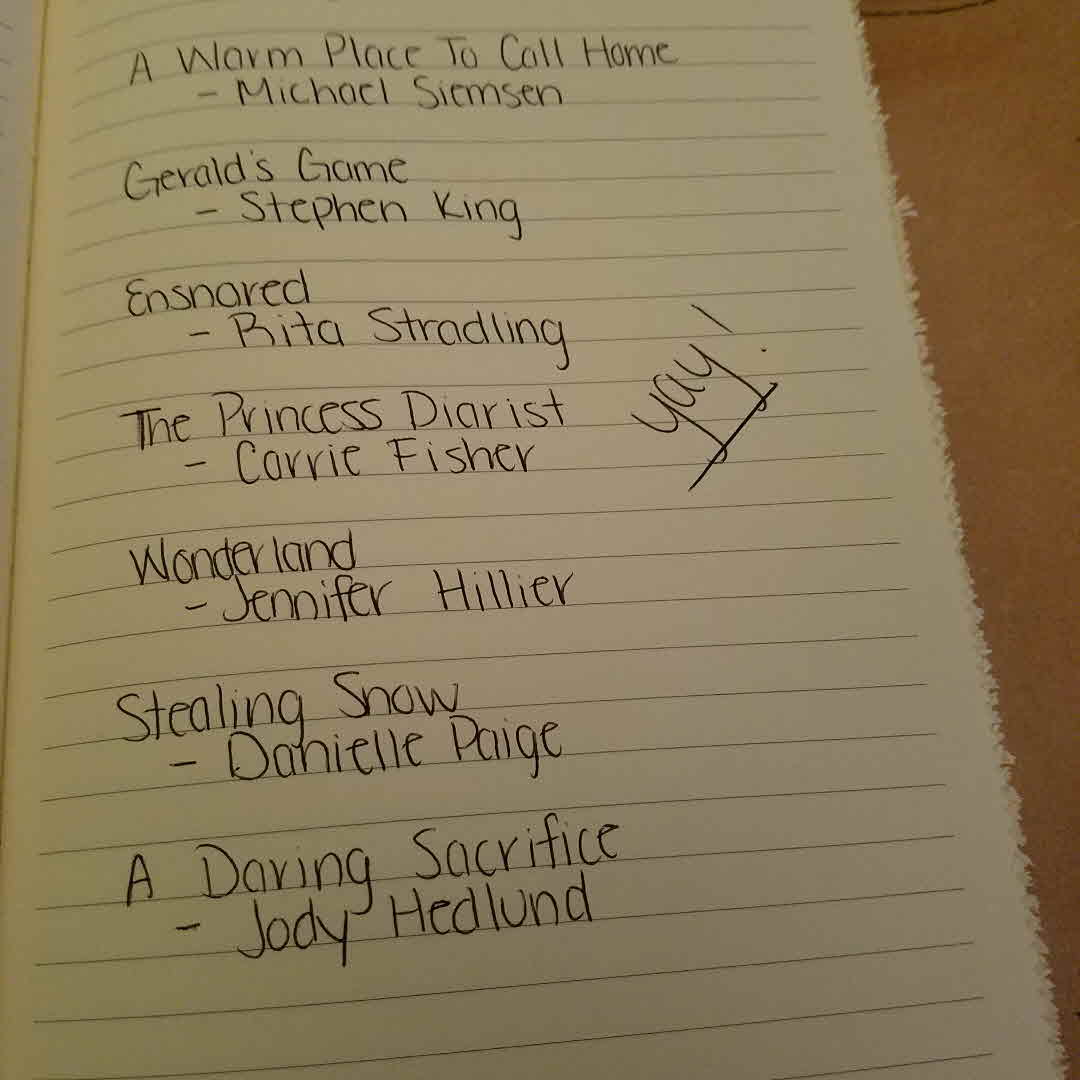 A Warm Place To Call Home
- Michael Siemsen
Gerald's Game
- Stephen King
Ensnared
- Rita Stradling
The Princess Diarist
- Carrie Fisher
yay!
Wonderland
- Jennifer Hillier
Stealing Snow
- Danielle Paige
A Daring Sacrifice
- Jody Hedlund